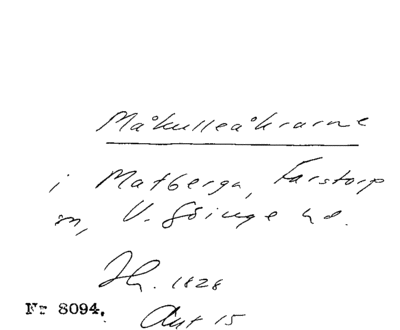 Måkulleåkrarne
i Matberga, Farstorp
sn, V. Göinge hd.
Jh. 1828
Nr 8094.
Akt 15